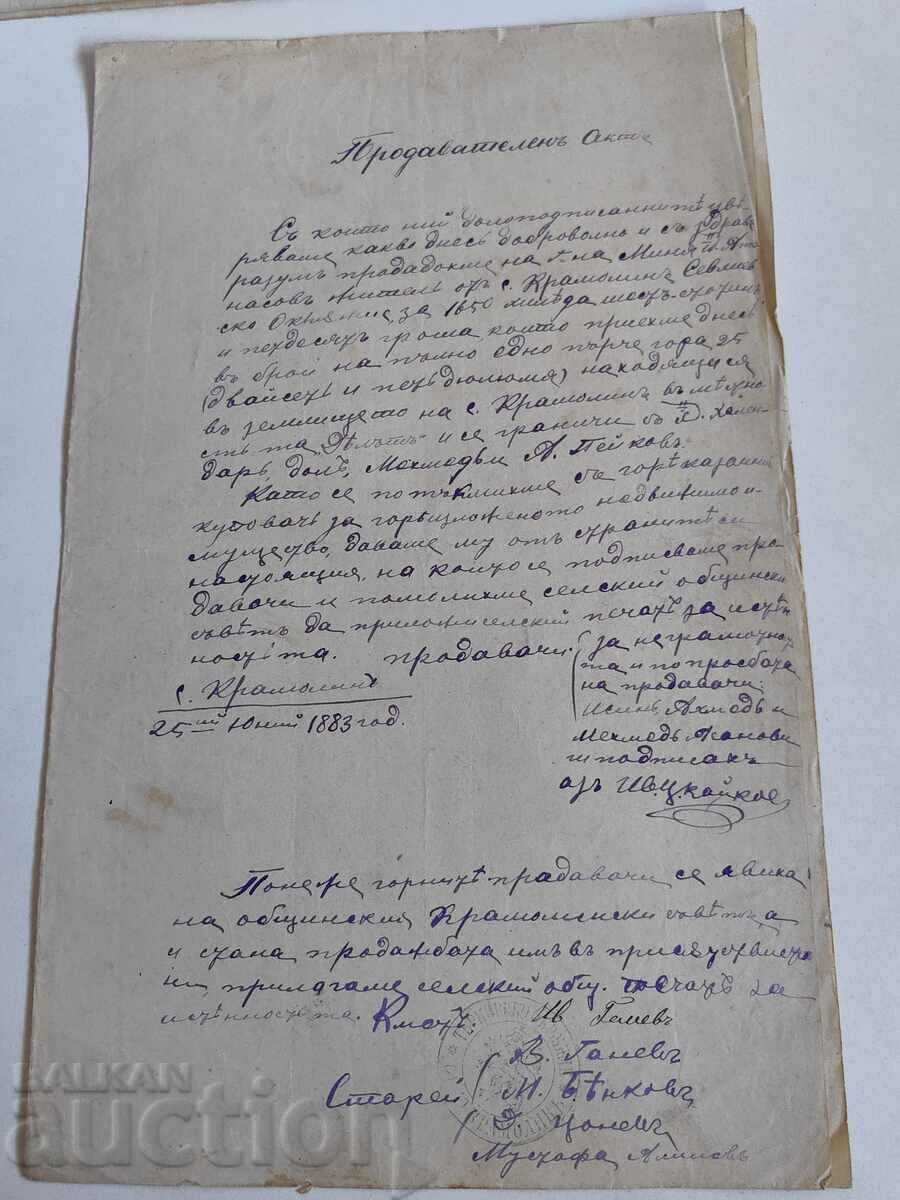 Продавателенъ Актъ
Съ който ний долоподписаннитѣ увѣ-
ряваме какво днесь доброволно и съ здравъ
разумъ продадохме на Г-на Миня П. Ата
насовъ жителъ отъ с. Крамолинъ Севлиев
ско Окѫжие, за 1650 хилѣда шестъ-стотинъ
и петдесятъ гроша, които приехме днесь
въ брой на пълно едно търче гора 25
(двайсеть и петь дюлюма) находяща ся
въ землището на с. Крамолинъ въ мѣстно
стьта и се граничи съ Д. Хален-
даръ, долъ, Мехмедъ и А. Пейковъ.
Като се потъкмихме съ горѣказанний
куповачь за горѣизложеното недвижимо и-
мущество, даваме му отъ странитѣ си
настоящия, на който се подписваме про-
давачи и помолихме селский общински
съвѣтъ да приложи селский печатъ за истин
ностьта. продавачи:
с. Крамолинъ
25ий Юний 1883 год.
за неграмотность
та и по просбата
на продавачи:
Исинъ, Ахмедъ и
Мехмедъ
подписахъ
азъ Ив. Ц. Кайков
Понеже горнитѣ прадавачи се явиха
на общинский Крамолински съвѣтъ а
и стана продажбата имъ въ присутствието
ни, прилагаме селский общ. печатъ за
истинностьта. Кметъ: Ив Ганевъ
В. Ганевъ
Старей М. Бѣнковъ
Цоневъ
Мустафа Алиловъ
BALKAN
auction